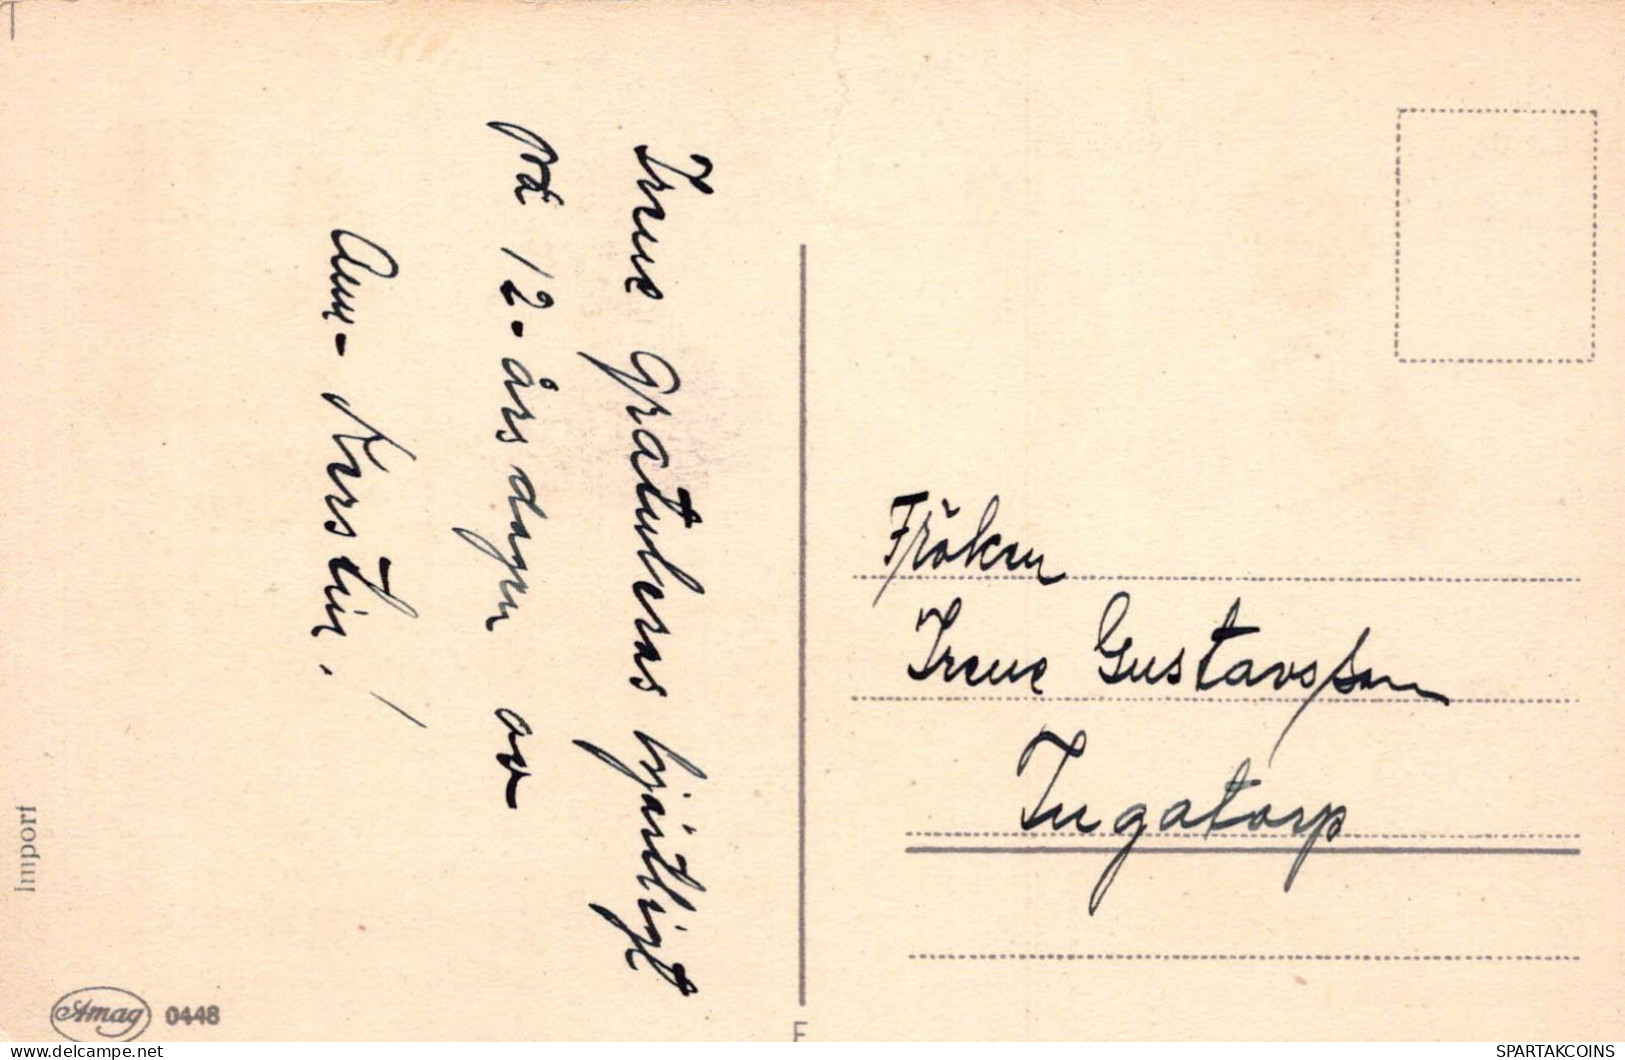 Irene Gratuleras hjärtligt
på 12-årsdagen av
Ann-Kerstin!
Fröken
Irene Gustavsson
Ingatorp
Import
Amag 0448
F
SPARTAKCOINS